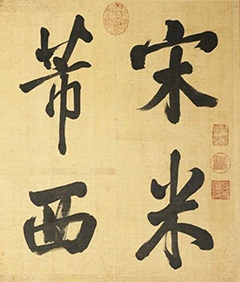 宋米
芾西